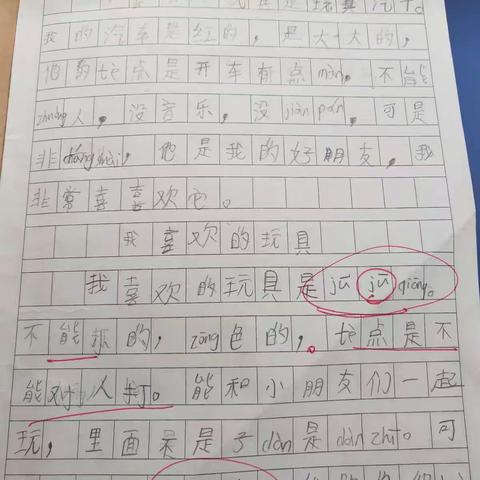 我的汽车是红的，是大大的，
他的tè点是开车有点màn。不能
zhuàng人，没音乐，没jiàn pán，可是
非cháng kuài，他是我的好朋友，我
非常喜喜欢它。
我喜欢的玩具
我喜欢的玩具是jū jū qiāng。
不能 的，zōng色的，。tè点是不
能对人打。能和小朋友们一起
玩，里面 是子dàn是dàn zhū。可